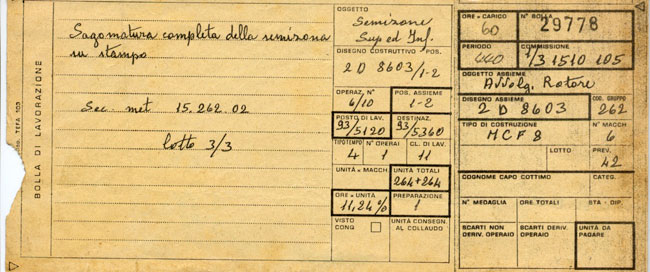 BOLLA DI LAVORAZIONE
Sagomatura completa della semizona
su stampo
Sec. met 15.262.02
lotto 3/3
OGGETTO
Semizone
Sup ed Inf.
DISEGNO COSTRUTTIVO - POS.
2 D 8603/1-2
OPERAZ. N° POS. ASSIEME
6/10 1-2
POSTO DI LAV. DESTINAZ.
93/5120 93/5360
TIPOTEMPO N° OPERAI CL. DI LAV.
4 1 11
UNITÀ = MACCH. UNITÀ TOTALI
264+264
ORE = UNITÀ PREPARAZIONE
11,24% 1
VISTO CONG UNITÀ CONSEGN. AL COLLAUDO
ORE = CARICO N° BOLLA
60 29778
PERIODO COMMISSIONE
440 1/31510 105
OGGETTO ASSIEME
Avvolg. Rotore
DISEGNO ASSIEME COD. GRUPPO
2 D 8603 262
TIPO DI COSTRUZIONE N° MACCH
MCF8 6
LOTTO PREV.
42
COGNOME CAPO COTTIMO CATEG.
N° MEDAGLIA ORE TOTALI STA - DIP.
SCARTI NON DERIV. OPERAIO SCARTI DERIV. OPERAIO UNITÀ DA PAGARE